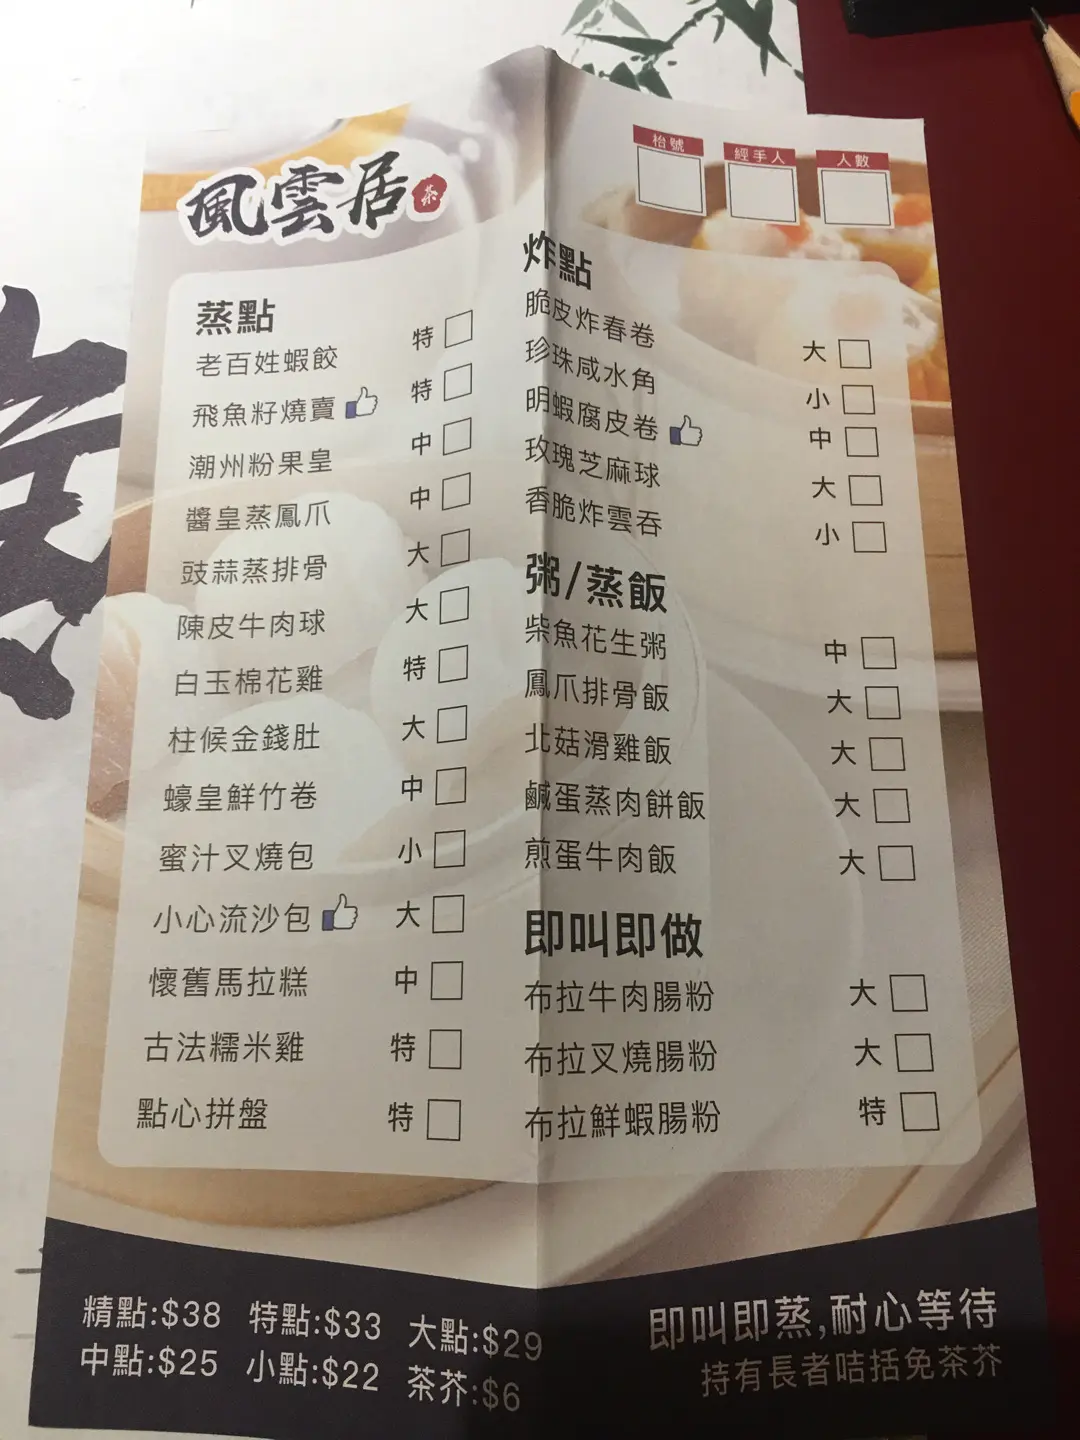 風雲居 茶
枱號 經手人 人數
蒸點
老百姓蝦餃 特
飛魚籽燒賣 特
潮州粉果皇 中
醬皇蒸鳳爪 中
豉蒜蒸排骨 大
陳皮牛肉球 大
白玉棉花雞 特
柱候金錢肚 大
蠔皇鮮竹卷 中
蜜汁叉燒包 小
小心流沙包 大
懷舊馬拉糕 中
古法糯米雞 特
點心拼盤 特
炸點
脆皮炸春卷 大
珍珠咸水角 小
明蝦腐皮卷 中
玫瑰芝麻球 大
香脆炸雲吞 小
粥/蒸飯
柴魚花生粥 中
鳳爪排骨飯 大
北菇滑雞飯 大
鹹蛋蒸肉餅飯 大
煎蛋牛肉飯 大
即叫即做
布拉牛肉腸粉 大
布拉叉燒腸粉 大
布拉鮮蝦腸粉 特
精點:$38 特點:$33 大點:$29
中點:$25 小點:$22 茶芥:$6
即叫即蒸,耐心等待
持有長者咭括免茶芥